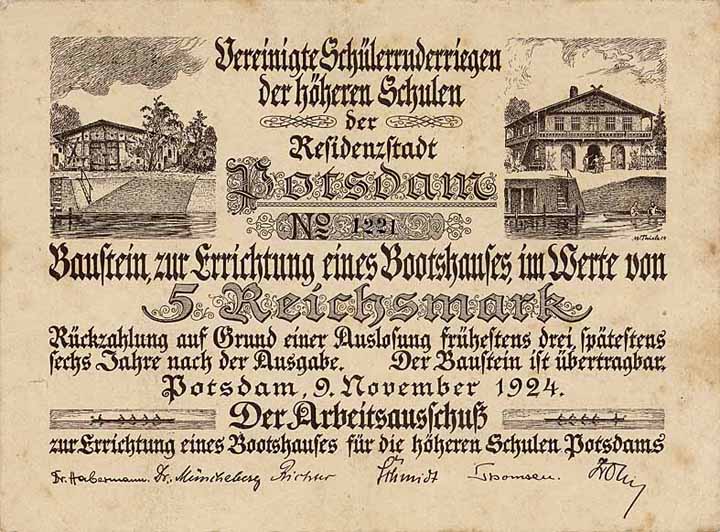 Vereinigte Schülerruderriegen
der höheren Schulen
der
Residenzstadt
Potsdam
No 1221
Baustein, zur Errichtung eines Bootshauses, im Werte von
5 Reichsmark
Rückzahlung auf Grund einer Auslosung frühestens drei, spätestens
sechs Jahre nach der Ausgabe. Der Baustein ist übertragbar.
Potsdam, 9. November 1924.
Der Arbeitsausschuß
zur Errichtung eines Bootshauses für die höheren Schulen Potsdams
Dr. Habermann. Dr. Müncheberg Richter Schmidt Thomsen.